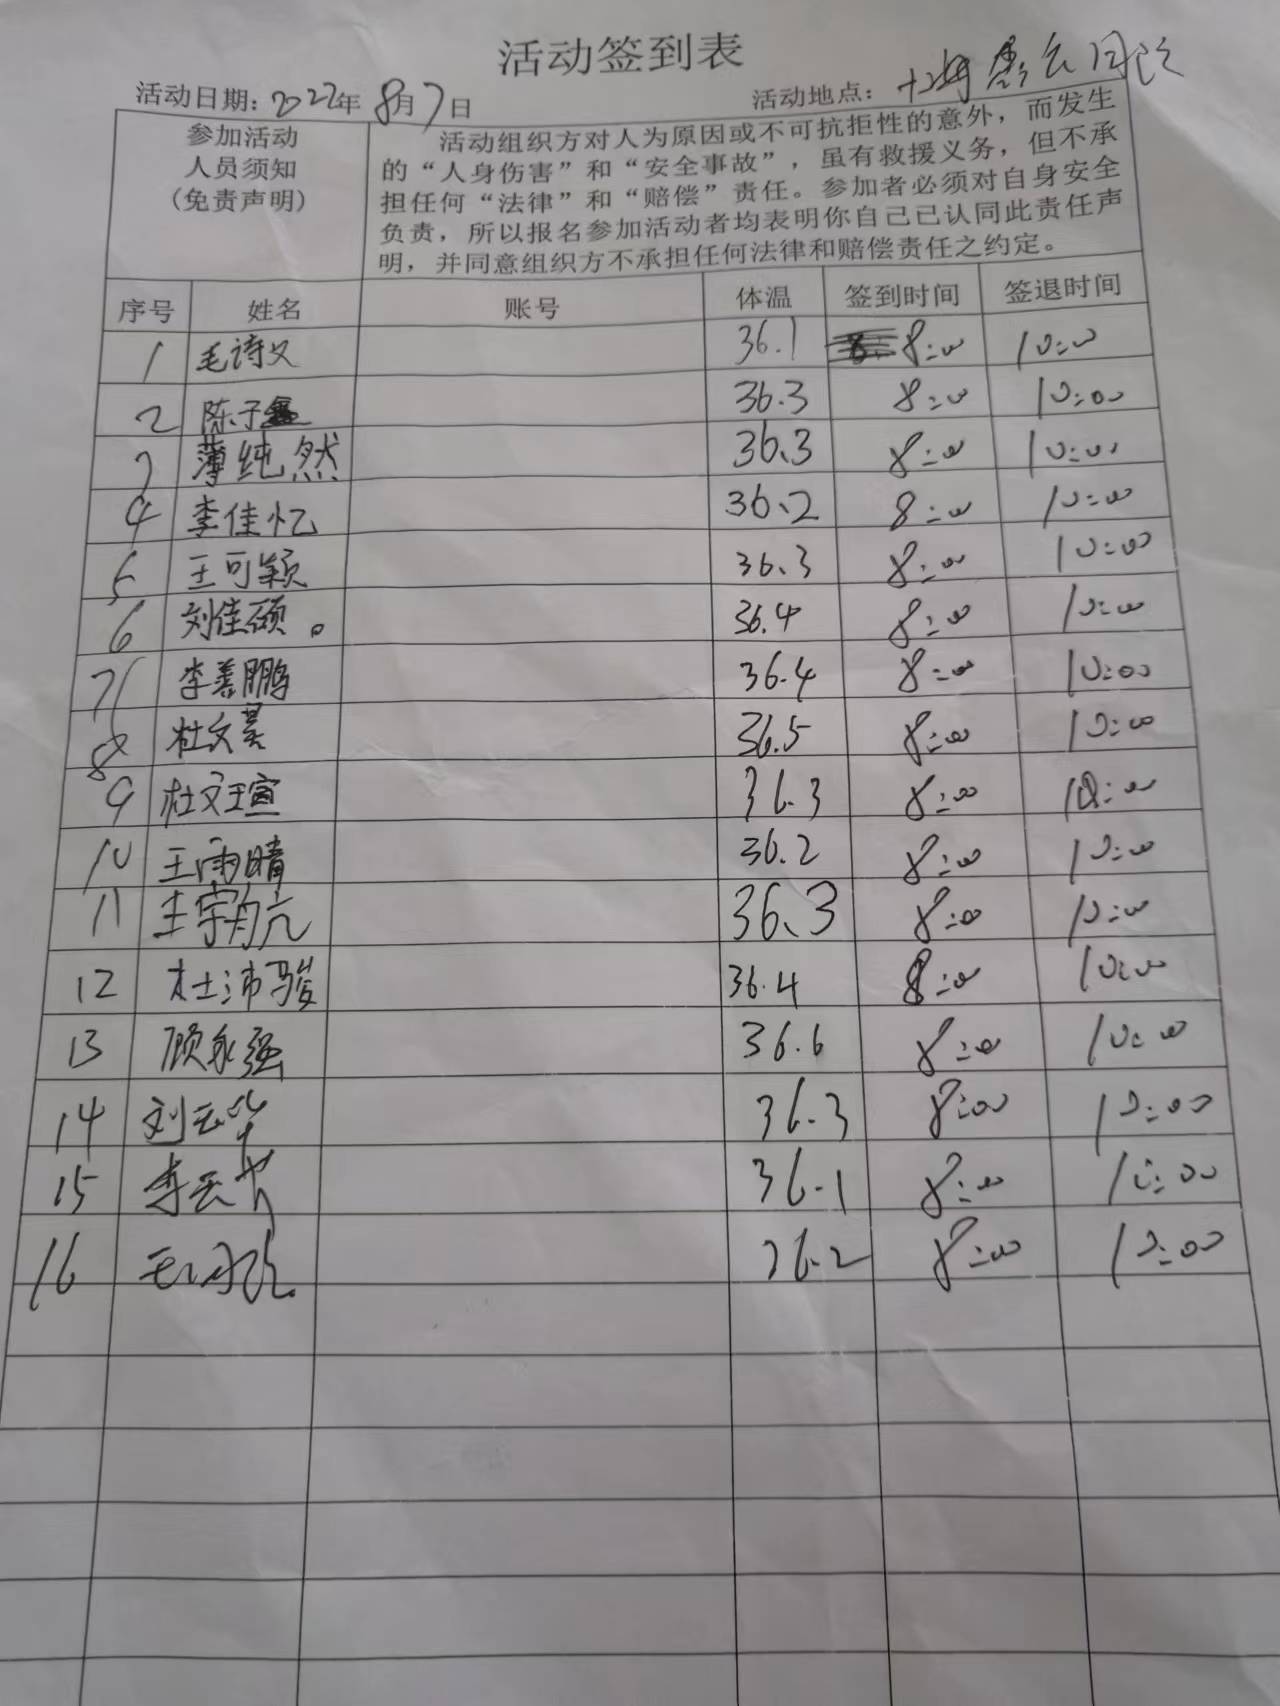 活动签到表
活动日期: 2022年 8月7日 活动地点:
参加活动
人员须知
(免责声明)
活动组织方对人为原因或不可抗拒性的意外，而发生
的“人身伤害”和“安全事故”，虽有救援义务，但不承
担任何“法律”和“赔偿”责任。参加者必须对自身安全
负责，所以报名参加活动者均表明你自己已认同此责任声
明，并同意组织方不承担任何法律和赔偿责任之约定。
序号 姓名 账号 体温 签到时间 签退时间
1 毛诗义 36.1 8:00 10:00
2 陈子鑫 36.3 8:00 10:00
3 薄纯然 36.3 8:00 10:00
4 李佳忆 36.2 8:00 10:00
5 王可颖 36.3 8:00 10:00
6 刘佳硕。 36.4 8:00 10:00
7 李善鹏 36.4 8:00 10:00
8 杜文昊 36.5 8:00 10:00
9 杜文瑄 36.3 8:00 10:00
10 王雨晴 36.2 8:00 10:00
11 王宇航 36.3 8:00 10:00
12 杜沛骏 36.4 8:00 10:00
13 顾永强 36.6 8:00 10:00
14 刘云华 36.3 8:00 10:00
15 李 36.1 8:00 10:00
16 36.2 8:00 10:00